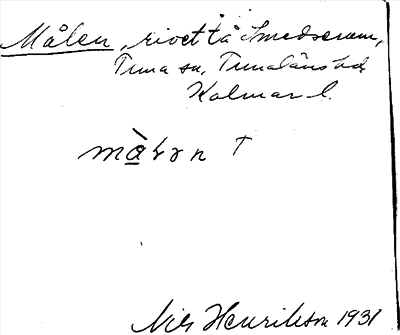 Målen, rivet tå Smedserum,
Tuna sn, Tunaläns hd
Kalmar l.
màlən †
Nils Henrikson 1931